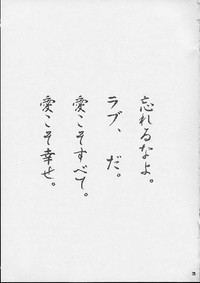 忘れるなよ。
ラブ、だ。
愛こそすべて。
愛こそ幸せ。